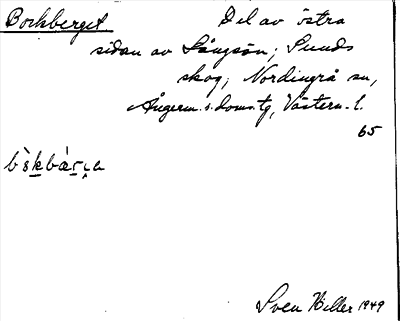 Bockberget Del av östra
sidan av Långsön; Sunds
skog; Nordingrå sn,
Ångerm. s. doms.tg, Västern. l.
65
bs̀kbàrı̣a
Sven Hiller 1949